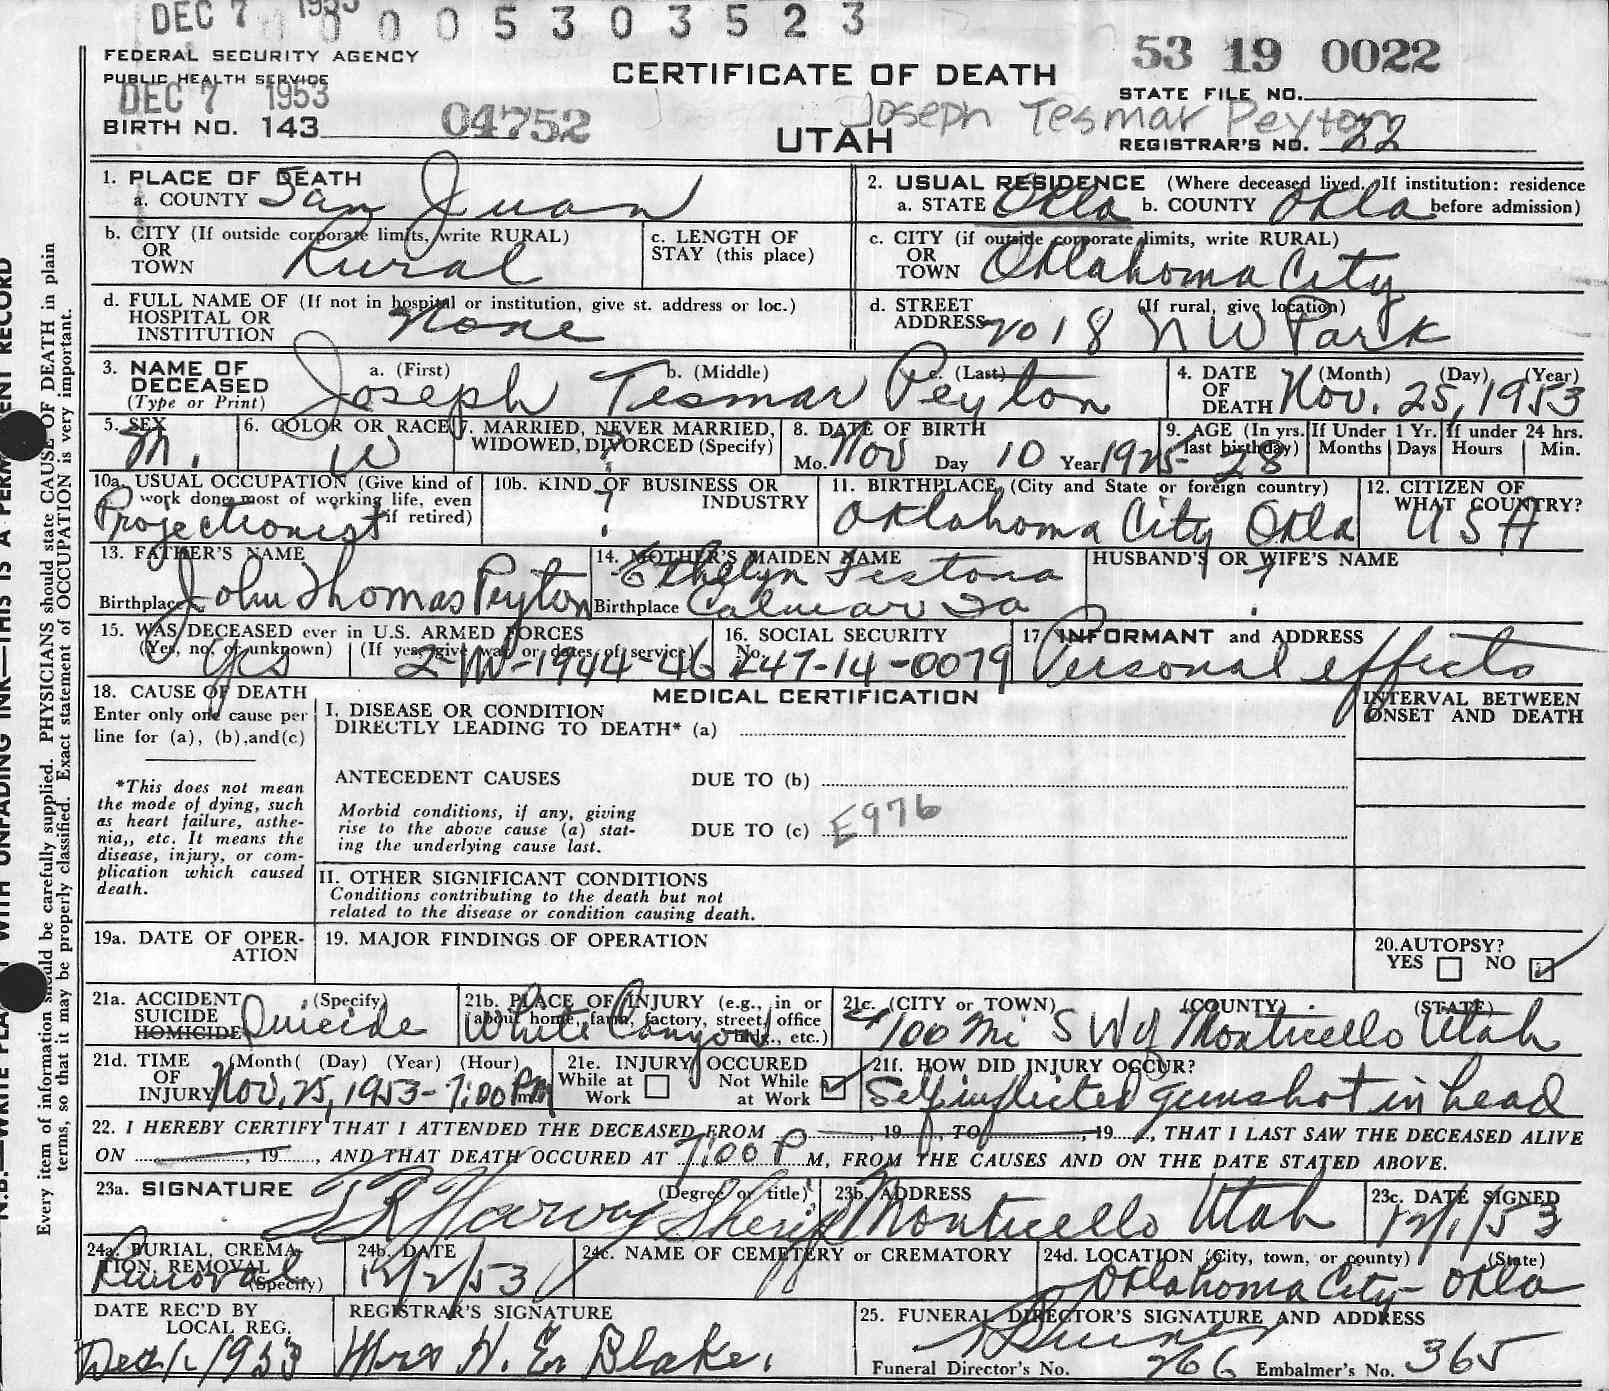 DEC 7 1953
0 0 0 5 3 0 3 5 2 3
FEDERAL SECURITY AGENCY
PUBLIC HEALTH SERVICE
DEC 7 1953
BIRTH NO. 143
04752
CERTIFICATE OF DEATH
UTAH
53 19 0022
STATE FILE NO.
Joseph Tesmar Peyton
REGISTRAR'S NO. 22
1. PLACE OF DEATH
a. COUNTY San Juan
2. USUAL RESIDENCE (Where deceased lived. If institution: residence before admission)
a. STATE Okla b. COUNTY Okla
b. CITY (If outside corporate limits, write RURAL) OR TOWN Rural
c. LENGTH OF STAY (this place)
c. CITY (if outside corporate limits, write RURAL) OR TOWN Oklahoma City
d. FULL NAME OF (If not in hospital or institution, give st. address or loc.) HOSPITAL OR INSTITUTION None
d. STREET ADDRESS (If rural, give location) 2018 NW Park
3. NAME OF DECEASED (Type or Print)
a. (First) Joseph b. (Middle) Tesmar c. (Last) Peyton
4. DATE OF DEATH (Month) (Day) (Year) Nov. 25, 1953
5. SEX M.
6. COLOR OR RACE W
7. MARRIED, NEVER MARRIED, WIDOWED, DIVORCED (Specify) ?
8. DATE OF BIRTH Mo. Nov Day 10 Year 1925
9. AGE (In yrs. last birthday) 28
If Under 1 Yr. Months Days
If under 24 hrs. Hours Min.
10a. USUAL OCCUPATION (Give kind of work done most of working life, even if retired) Projectionist
10b. KIND OF BUSINESS OR INDUSTRY ?
11. BIRTHPLACE (City and State or foreign country) Oklahoma City Okla
12. CITIZEN OF WHAT COUNTRY? USA
13. FATHER'S NAME John Thomas Peyton
Birthplace
14. MOTHER'S MAIDEN NAME Ethelyn
Birthplace Calmar Ia
HUSBAND'S OR WIFE'S NAME ?
15. WAS DECEASED ever in U.S. ARMED FORCES
(Yes, no, or unknown) (If yes, give war or dates of service)
Yes 2-W-1944-46
16. SOCIAL SECURITY No. 447-14-0079
17. INFORMANT and ADDRESS
Personal effects
18. CAUSE OF DEATH
Enter only one cause per line for (a), (b), and (c)
*This does not mean the mode of dying, such as heart failure, asthenia,, etc. It means the disease, injury, or complication which caused death.
MEDICAL CERTIFICATION
INTERVAL BETWEEN ONSET AND DEATH
I. DISEASE OR CONDITION DIRECTLY LEADING TO DEATH* (a)
ANTECEDENT CAUSES DUE TO (b)
Morbid conditions, if any, giving rise to the above cause (a) stating the underlying cause last.
DUE TO (c) E976
II. OTHER SIGNIFICANT CONDITIONS
Conditions contributing to the death but not related to the disease or condition causing death.
19a. DATE OF OPERATION
19. MAJOR FINDINGS OF OPERATION
20. AUTOPSY?
YES NO
21a. ACCIDENT SUICIDE HOMICIDE (Specify) Suicide
21b. PLACE OF INJURY (e.g., in or about home, farm, factory, street, office bldg., etc.) White Canyon
21c. (CITY or TOWN) (COUNTY) (STATE)
100 Mi SW of Monticello Utah
21d. TIME OF INJURY (Month) (Day) (Year) (Hour) Nov. 25, 1953 - 7:00 PM
21e. INJURY OCCURED
While at Work Not While at Work
21f. HOW DID INJURY OCCUR?
Self inflicted gunshot in head
22. I HEREBY CERTIFY THAT I ATTENDED THE DECEASED FROM , 19 , TO , 19 , THAT I LAST SAW THE DECEASED ALIVE
ON , 19 , AND THAT DEATH OCCURED AT 7:00 P M, FROM THE CAUSES AND ON THE DATE STATED ABOVE.
23a. SIGNATURE (Degree or title) Sheriff
23b. ADDRESS Monticello Utah
23c. DATE SIGNED 12/1/53
24a. BURIAL, CREMATION, REMOVAL (Specify) Removal
24b. DATE 12/2/53
24c. NAME OF CEMETERY or CREMATORY
24d. LOCATION (City, town, or county) (State)
Oklahoma City - Okla
DATE REC'D BY LOCAL REG. Dec 1. 1953
REGISTRAR'S SIGNATURE Mrs H. E. Blake.
25. FUNERAL DIRECTOR'S SIGNATURE AND ADDRESS
Funeral Director's No. 266 Embalmer's No. 365
N.B.—WRITE WITH UNFADING INK—THIS IS A RECORD
Every item of information should be carefully supplied. PHYSICIANS should state CAUSE OF DEATH in plain
terms, so that it may be properly classified. Exact statement of OCCUPATION is very important.